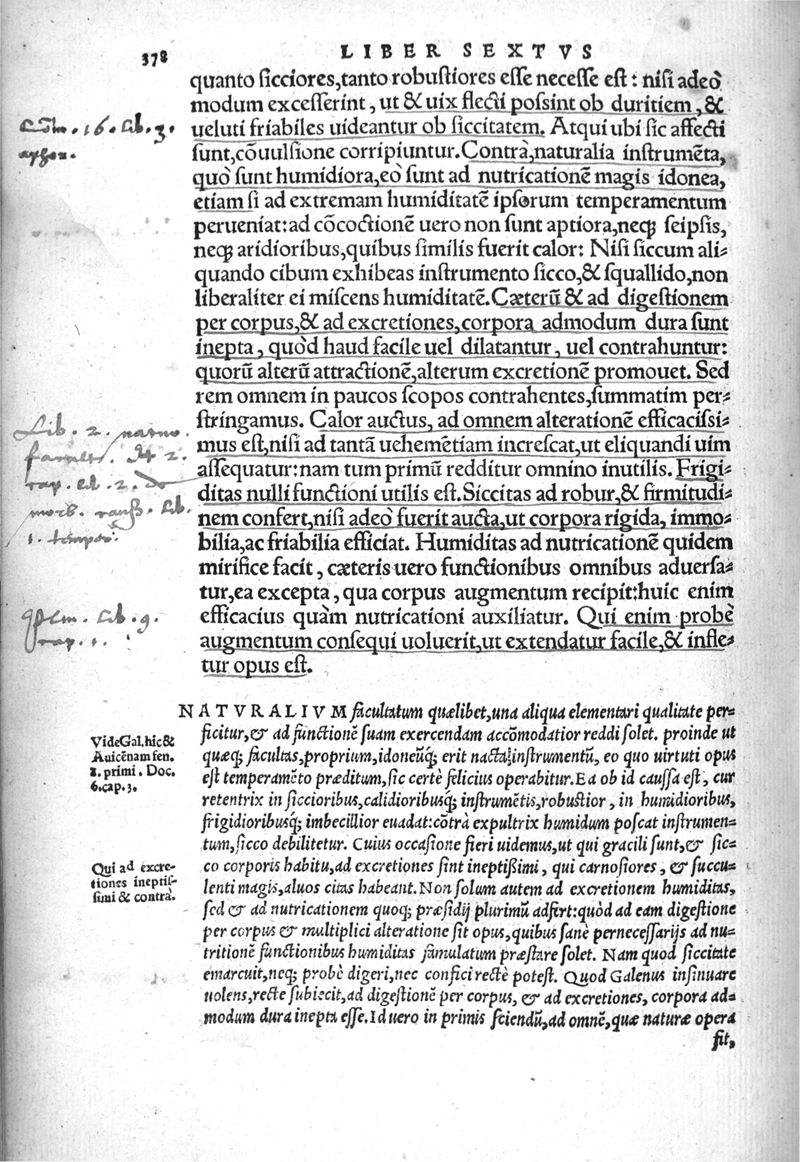 378
LIBER SEXTVS
quanto sicciores,tanto robustiores esse necesse est : nisi adeò
modum excesserint , ut & uix flecti possint ob duritiem , &
ueluti friabiles uideantur ob siccitatem. Atqui ubi sic affecti
sunt,cōuulsione corripiuntur.Contrà,naturalia instrumēta,
quò sunt humidiora,eò sunt ad nutricationē magis idonea,
etiam si ad extremam humiditatē ipsorum temperamentum
perueniat:ad cōcoctionē uero non sunt aptiora,neq; seipsis,
neq; aridioribus,quibus similis fuerit calor: Nisi siccum ali-
quando cibum exhibeas instrumento sicco,& squallido,non
liberaliter ei miscens humiditatē. Cæterū & ad digestionem
per corpus,& ad excretiones,corpora admodum dura sunt
inepta , quòd haud facile uel dilatantur , uel contrahuntur:
quorū alterū attractionē,alterum excretionem promouet. Sed
rem omnem in paucos scopos contrahentes,summatim per-
stringamus. Calor auctus, ad omnem alterationē efficacissi-
mus est,nisi ad tantā uehemētiam increscat,ut eliquandi uim
assequatur:nam tum primū redditur omnino inutilis. Frigi-
ditas nulli functioni utilis est. Siccitas ad robur,& firmitudi-
nem confert,nisi adeò fuerit aucta,ut corpora rigida, immo-
bilia,ac friabilia efficiat. Humiditas ad nutricationē quidem
mirifice facit , cæteris uero functionibus omnibus aduersa-
tur,ea excepta, qua corpus augmentum recipit:huic enim
efficacius quàm nutricationi auxiliatur. Qui enim probè
augmentum consequi uoluerit,ut extendatur facile,& infle-
tur opus est.
Com. 16. Lib. 3.
aphor.
Lib. 2. natur.
facult. Et 2.
cap. Lib. 2. de
morb. Lib.
1. temper.
Lib. 9.
cap. 1.
NATVRALIVM facultatum quælibet,una aliqua elementari qualitate per-
ficitur,& ad functionē suam exercendam accōmodatior reddi solet. proinde ut
quæq; facultas,proprium,idoneūq; erit nacta instrumentū, eo quo uirtuti opus
est temperamēto præditum,sic certè felicius operabitur.Ea ob id caussa est , cur
retentrix in siccioribus,calidioribusq; instrumētis,robustior , in humidioribus,
frigidioribusq; imbecillior euadat:cōtrà expultrix humidum poscat instrumen-
tum,sicco debilitetur. Cuius occasione fieri uidemus,ut qui gracili sunt,& sic-
co corporis habitu,ad excretiones sint ineptißimi , qui carnosiores , & succu-
lenti magis,aluos citas habeant.Non solum autem ad excretionem humiditas,
sed & ad nutricationem quoq; præsidij plurimū adfert:quòd ad eam digestione
per corpus & multiplici alteratione sit opus,quibus sanè pernecessarijs ad nu-
tritionē functionibus humiditas famulatum præstare solet. Nam quod siccitate
emarcuit,neq; probè digeri,nec confici rectè potest. Quod Galenus insinuare
uolens,recte subiecit,ad digestionē per corpus, & ad excretiones, corpora ad-
modum dura inepta esse.Id uero in primis sciendū,ad omnē,quæ naturæ opera
fit,
VideGal.hic&
Auicēnam fen.
2. primi . Doc.
6.cap.3.
Qui ad excre-
tiones ineptis-
simi & contrà.